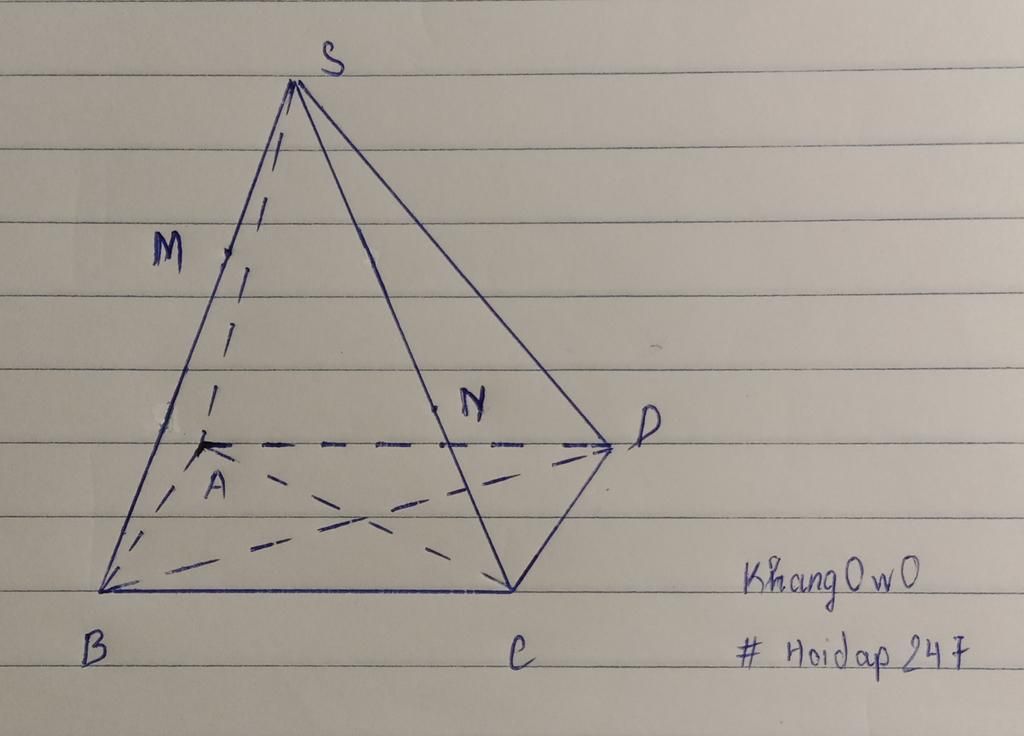 S
M
N
D
A
B
C
Khang OwO
# Hoidap 247